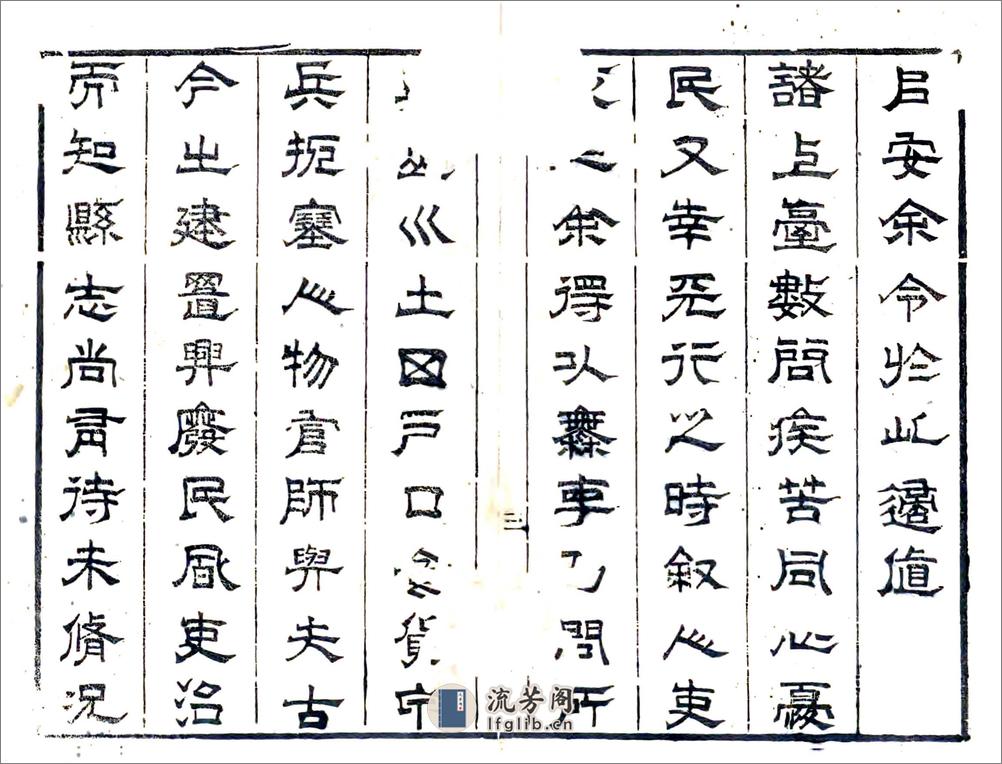 㠯安余令於此適值
諸上臺數問疾苦同心憂
民又幸天行之時叙人吏
余得以無事乃問所
山川土田戶口食貨
兵扼塞人物官師與夫古
今之建置興廢民風吏治
而知縣志尚需待未脩況
三
流芳阁
lfglib.cn